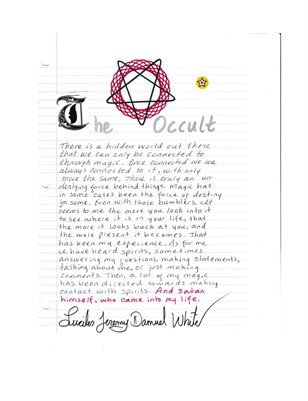 The Occult
There is a hidden world out there
that we can only be connected to
through magic. Once connected we are
always connected to it, with only
more the same. There is truly an un-
derlying force behind things. Magic has
in some cases been the force of destiny
for some. Even with those bumblers, it
seems to me the more you look into it
to see where it is in your life, that
the more it looks back at you, and
the more present it becomes. That
has been my experience. As for me
I have heard spirits, sometimes
answering my questions, making statements,
talking about me, or just making
comments. Then, a lot of my magic
has been directed towards making
contact with spirits. And Satan
himself, who came into my life.
Jeremy Damuel White